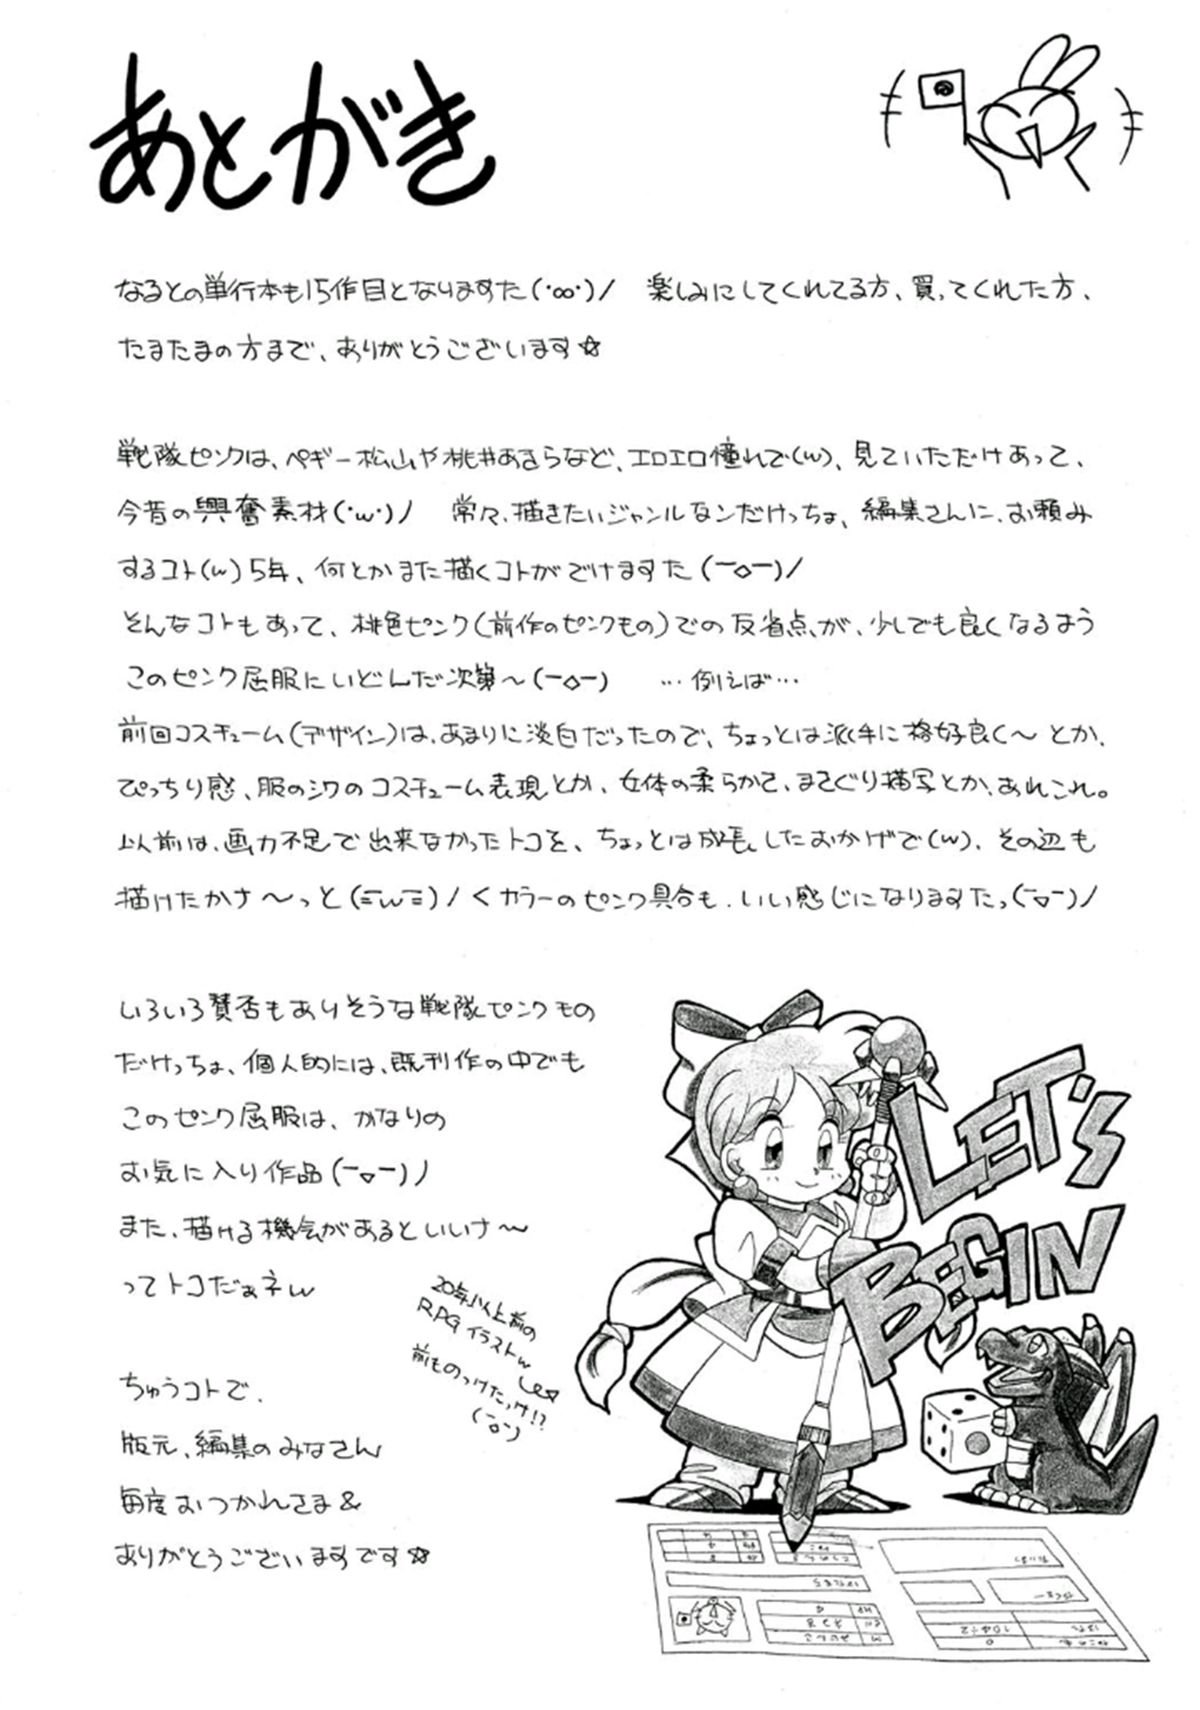 あとがき
なるとの単行本も15作目となりますた(･∞･)ノ 楽しみにしてくれてる方、買ってくれた方、
たまたまの方まで、ありがとうございます☆
戦隊ピンクは、ペギー松山や桃井あきらなど、エロエロ憧れで(w)、見ていただけあって、
今昔の興奮素材(･w･)ノ 常々、描きたいジャンルなンだけっちょ、編集さんに、お頼み
するコト(w)5年、何とかまた描くコトがでけますた(ー◇ー)ノ
そんなコトもあって、桃色ピンク(前作のピンクもの)での反省点が、少しでも良くなるよう
このピンク屈服にいどんだ次第〜(ー◇ー) …例えば…
前回コスチューム(デザイン)は、あまりに淡白だったので、ちょっとは派手に格好良く〜とか、
ぴっちり感、服のシワのコスチューム表現とか、女体の柔らかさ、まさぐり描写とか、あれこれ。
以前は、画力不足で出来なかったトコを、ちょっとは成長したおかげで(w)、その辺も
描けたかナ〜っと(ΞwΞ)ノ<カラーのピンク具合も、いい感じになりますたっ(ー▽ー)ノ
いろいろ賛否もありそうな戦隊ピンクもの
だけっちょ、個人的には、既刊作の中でも
このピンク屈服は、かなりの
お気に入り作品(ー▽ー)ノ
また、描ける機会があるといいナ〜
ってトコだぁネw
20年以上前の
RPGイラストw
前ものっけたっけ!?
(ー□ー)
ちゅうコトで、
版元、編集のみなさん
毎度おつかれさま&
ありがとうございますです☆
LET'S
BEGIN